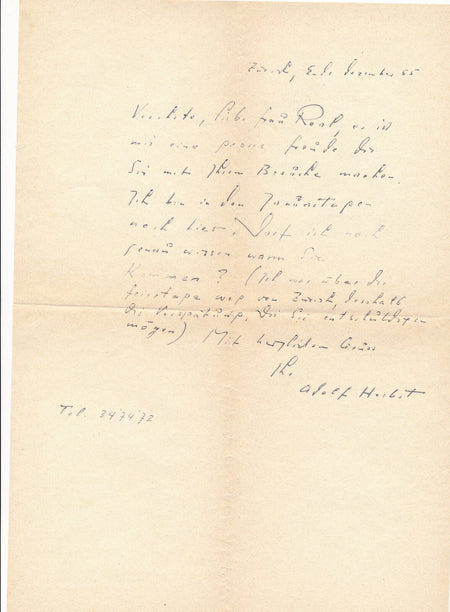 Zürich, Ende Dezember 55
Verehrte, liebe Frau Real, es ist
mir eine grosse Freude die
Sie mit Ihrem Besuche machen.
Ich bin in den Januartagen
noch hier. Darf ich noch
genau wissen wann Sie
kommen? (Ich war über die
Feiertage weg von Zürich, deshalb
die Verspätung, die Sie entschuldigen
mögen) Mit herzlichem Gruss
Ihr
Adolf Herbst
Tel. 347472